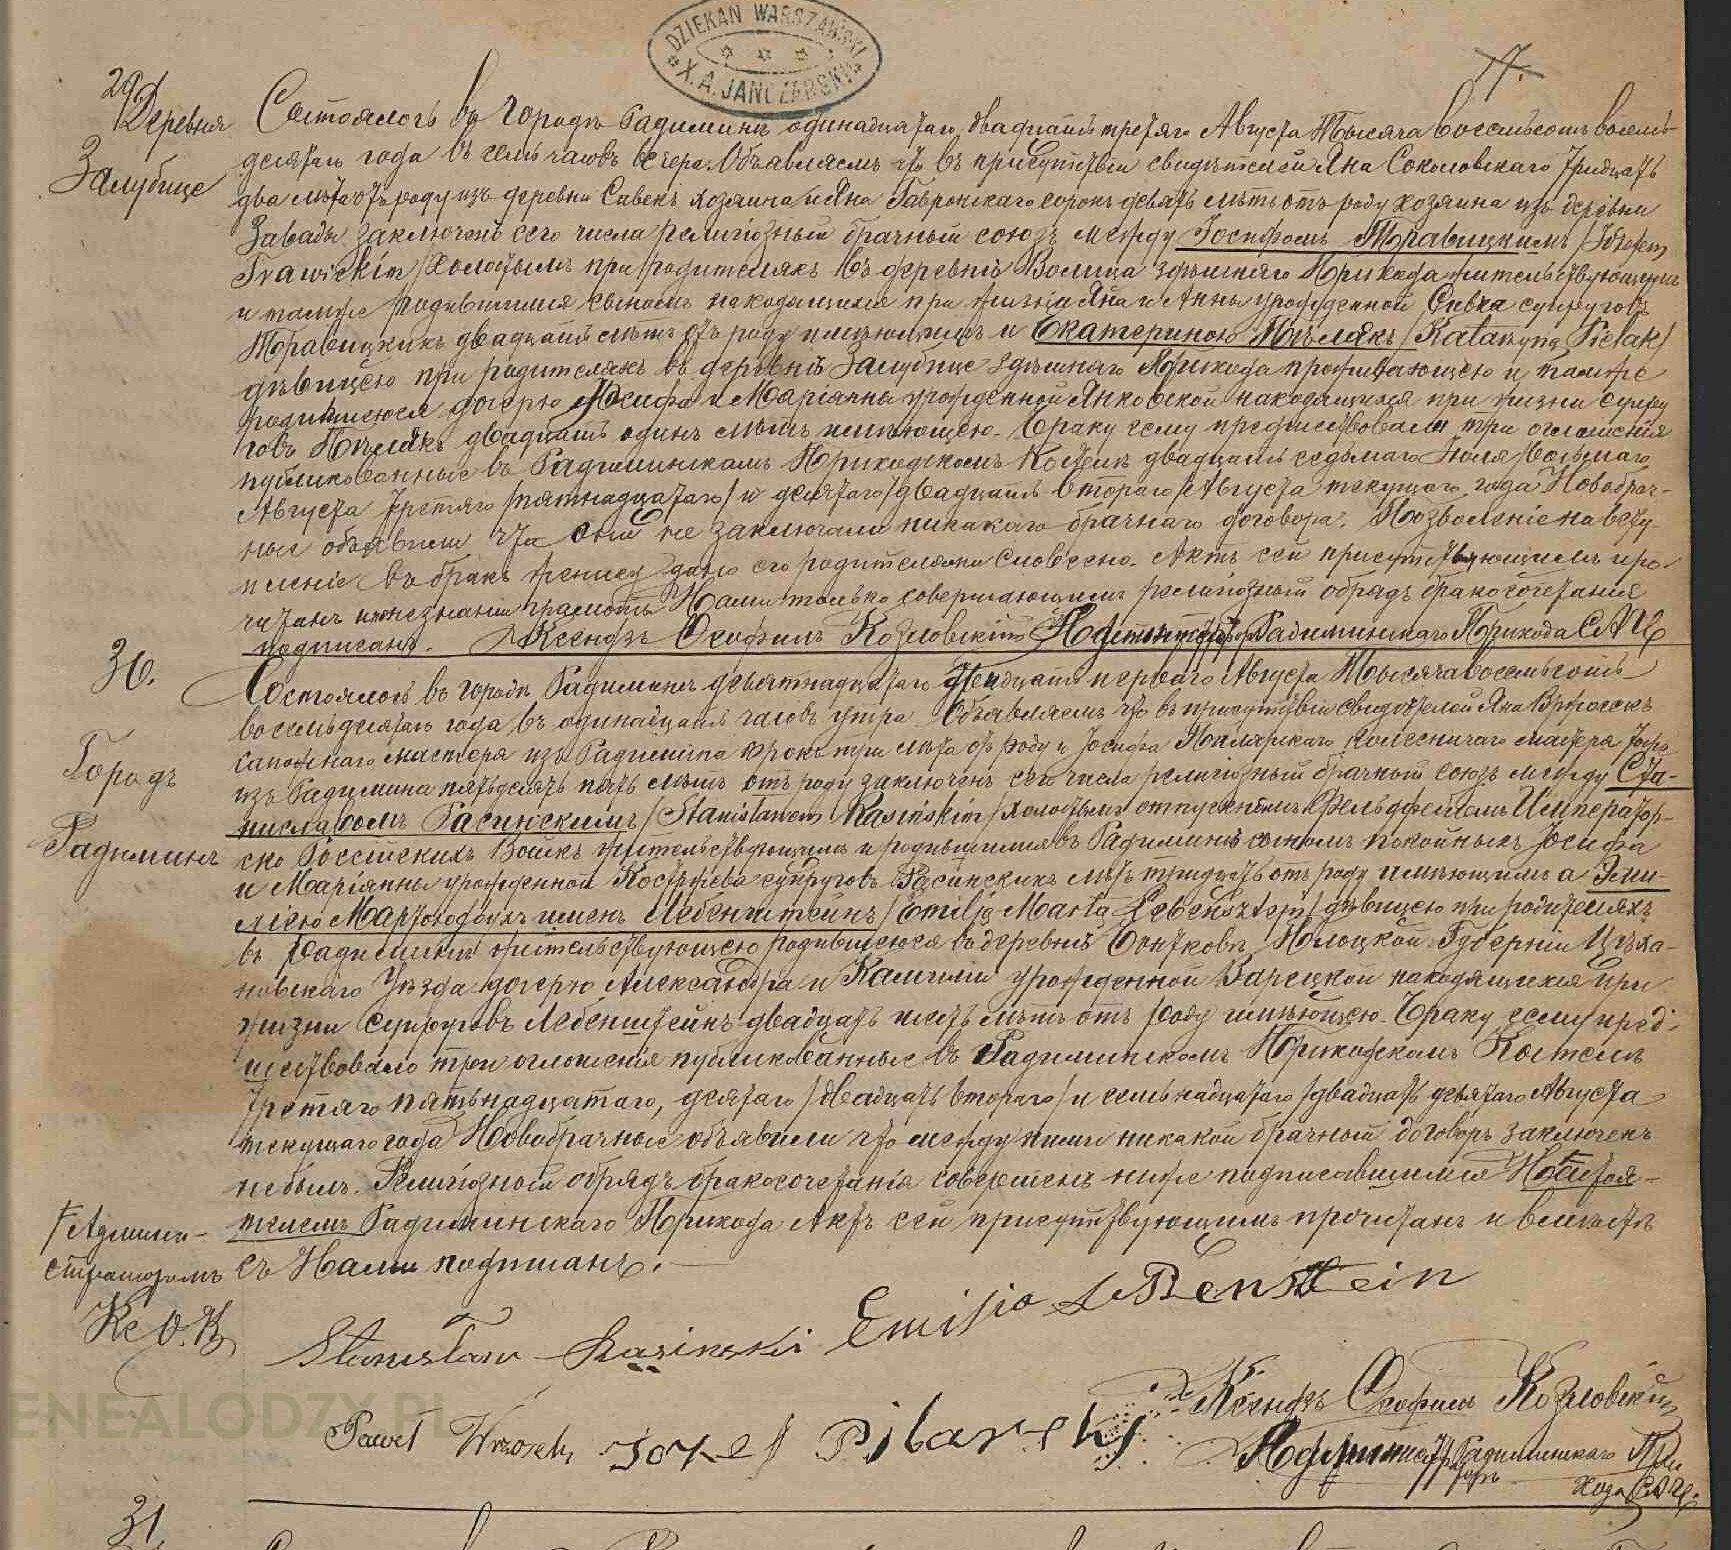 DZIEKAN WARSZAWSKI
X. A. JANCZARSKI
17.
29.
Деревня
Залубице
Состоялось въ Городѣ Радиминѣ одинадцатаго двадцать третяго Августа Тысяча восемьсотъ восемь-
десятаго года въ семь часовъ вечера. Объявляемъ что въ присутствіи свидѣтелей Яна Соколовскаго тридцать
два лѣта отъ роду изъ деревни хозяина и Яна Гавронскаго сорокъ девять лѣтъ отъ роду хозяина изъ деревни
Завады заключенъ сего числа религіозный брачный союзъ между Іосифомъ Травицкимъ /Józefem
Trawickim/ холостымъ при родителяхъ въ деревнѣ Волица здѣшняго Прихода жительствующимъ
и тамже родившимся сыномъ находящихся при жизни Яна и Анны урожденной супруговъ
Травицкихъ двадцать лѣтъ отъ роду имѣющимъ и Екатериною Пѣлякъ /Katarzyna Pielak/
дѣвицею при родителяхъ въ деревнѣ Залубице здѣшняго Прихода проживающею и тамже
родившеюся дочерю Іосифа и Маріянны урожденной Янковской находящихся при жизни супру
говъ Пѣлякъ двадцать одинъ лѣтъ имѣющею. Браку сему предшествовали три оглашенія
публикованные въ Радиминскомъ Приходскомъ Костелѣ двадцать седьмаго Іюля /восьмаго
Августа третяго /пятнадцатаго/ и десятаго /двадцать втораго/ Августа текущаго года Новобрач-
ные объявили что они не заключали никакаго брачнаго договора. Позволеніе на всту-
пленіе въ бракъ дано его родителями словесно. Актъ сей присутствующимъ про-
читанъ грамоты Нами только совершающимъ религіозный обрядъ бракосочетанія
подписанъ. Ксендзъ Ѳеофилъ Козловскій Радиминскаго Прихода
30.
Городъ
Радиминъ
Состоялось въ городѣ Радиминѣ девятнадцатаго тридцать перваго Августа Тысяча восемьсотъ
восемьдесятаго года въ одинадцать часовъ утра. Объявляемъ что въ присутствіи свидѣтелей
сапожнаго мастера изъ Радимина сорокъ три лѣта отъ роду и Іосифа Пиларскаго колесничаго мастера
изъ Радимина пятьдесятъ пять лѣтъ отъ роду заключенъ сего числа религіозный брачный союзъ между Ста-
ниславомъ Расинскимъ /Stanisławem Rasińskim/ холостымъ отпускнымъ Фельдфебелемъ Император-
ско Россійскихъ Войскъ жительствующимъ и родившимся въ Радиминѣ сыномъ покойныхъ Іосифа
и Маріянны урожденной супруговъ Расинскихъ лѣтъ тридцать отъ роду имѣющимъ а Эми-
ліею Мартою двоихъ именъ Лебенштейнъ /Emilią Martą Lebensztejn/ дѣвицею при родителяхъ
въ Радиминѣ жительствующею родившеюся въ деревнѣ Полоцкой Губерніи Цѣха-
новскаго Уѣзда дочерю Александра и Камиліи урожденной Зарецкой находящихся при
жизни Супруговъ Лебенштейнъ двадцать шесть лѣтъ отъ роду имѣющею. Браку сему пред-
шествовало три оглашенія публикованные въ Радиминскомъ Приходскомъ Костелѣ
третяго пятьнадцатаго, десятаго /двадцать втораго/ и семьнадцатаго /двадцать девятаго Августа
текущаго года Новобрачные объявили что между ними никакой брачный договоръ заключенъ
небылъ. Религіозный обрядъ бракосочетанія совершенъ ниже подписавшимся Настоя-
телемъ Радиминскаго Прихода Актъ сей присутствующимъ прочитанъ и вмѣстѣ
съ Нами подписанъ.
/Админи-
страторомъ
Кс Ѳ. К
Stanisław Rasinski Emilja Lebenstein
Paweł Wrzosek Jozef Pilarski
Ксендзъ Ѳеофилъ Козловскій
Администраторъ Радиминскаго При
хода
GENEALODZY.PL
31.